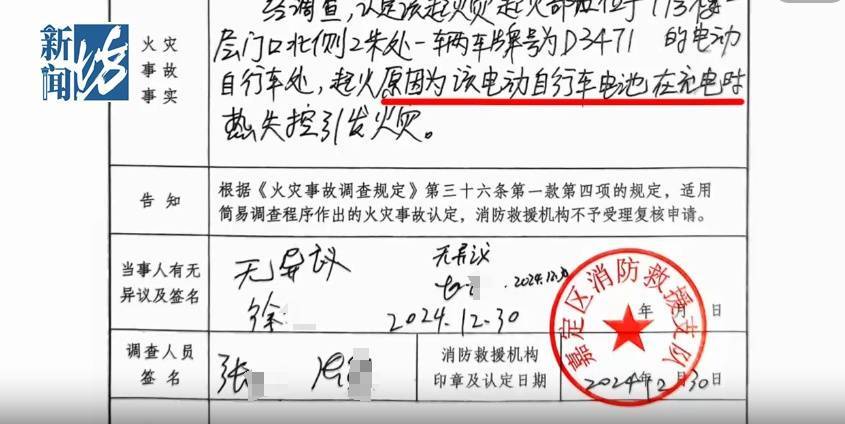 新闻坊
经调查,认定该起火灾起火部位位于113号楼一
火灾
事故
事实
层门口北侧2米处一辆车牌号为D3471 的电动
自行车处,起火原因为该电动自行车电池在充电时
热失控引发火灾。
告 知
根据《火灾事故调查规定》第三十六条第一款第四项的规定,适用
简易调查程序作出的火灾事故认定,消防救援机构不予受理复核申请。
当事人有无
异议及签名
无异议
徐
2024.12.30
无异议
2024.12.30
年 月 日
调查人员
签 名
张
消防救援机构
印章及认定日期
嘉定区消防救援支队
2024年12月30日